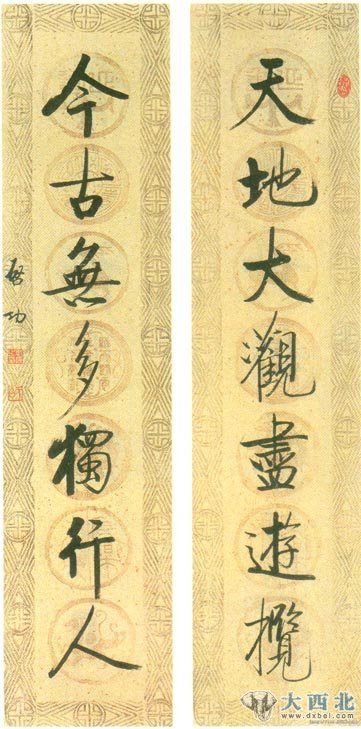 天地大觀盡遊攬
今古無多獨行人
啓功
大西北
www.dxbei.com